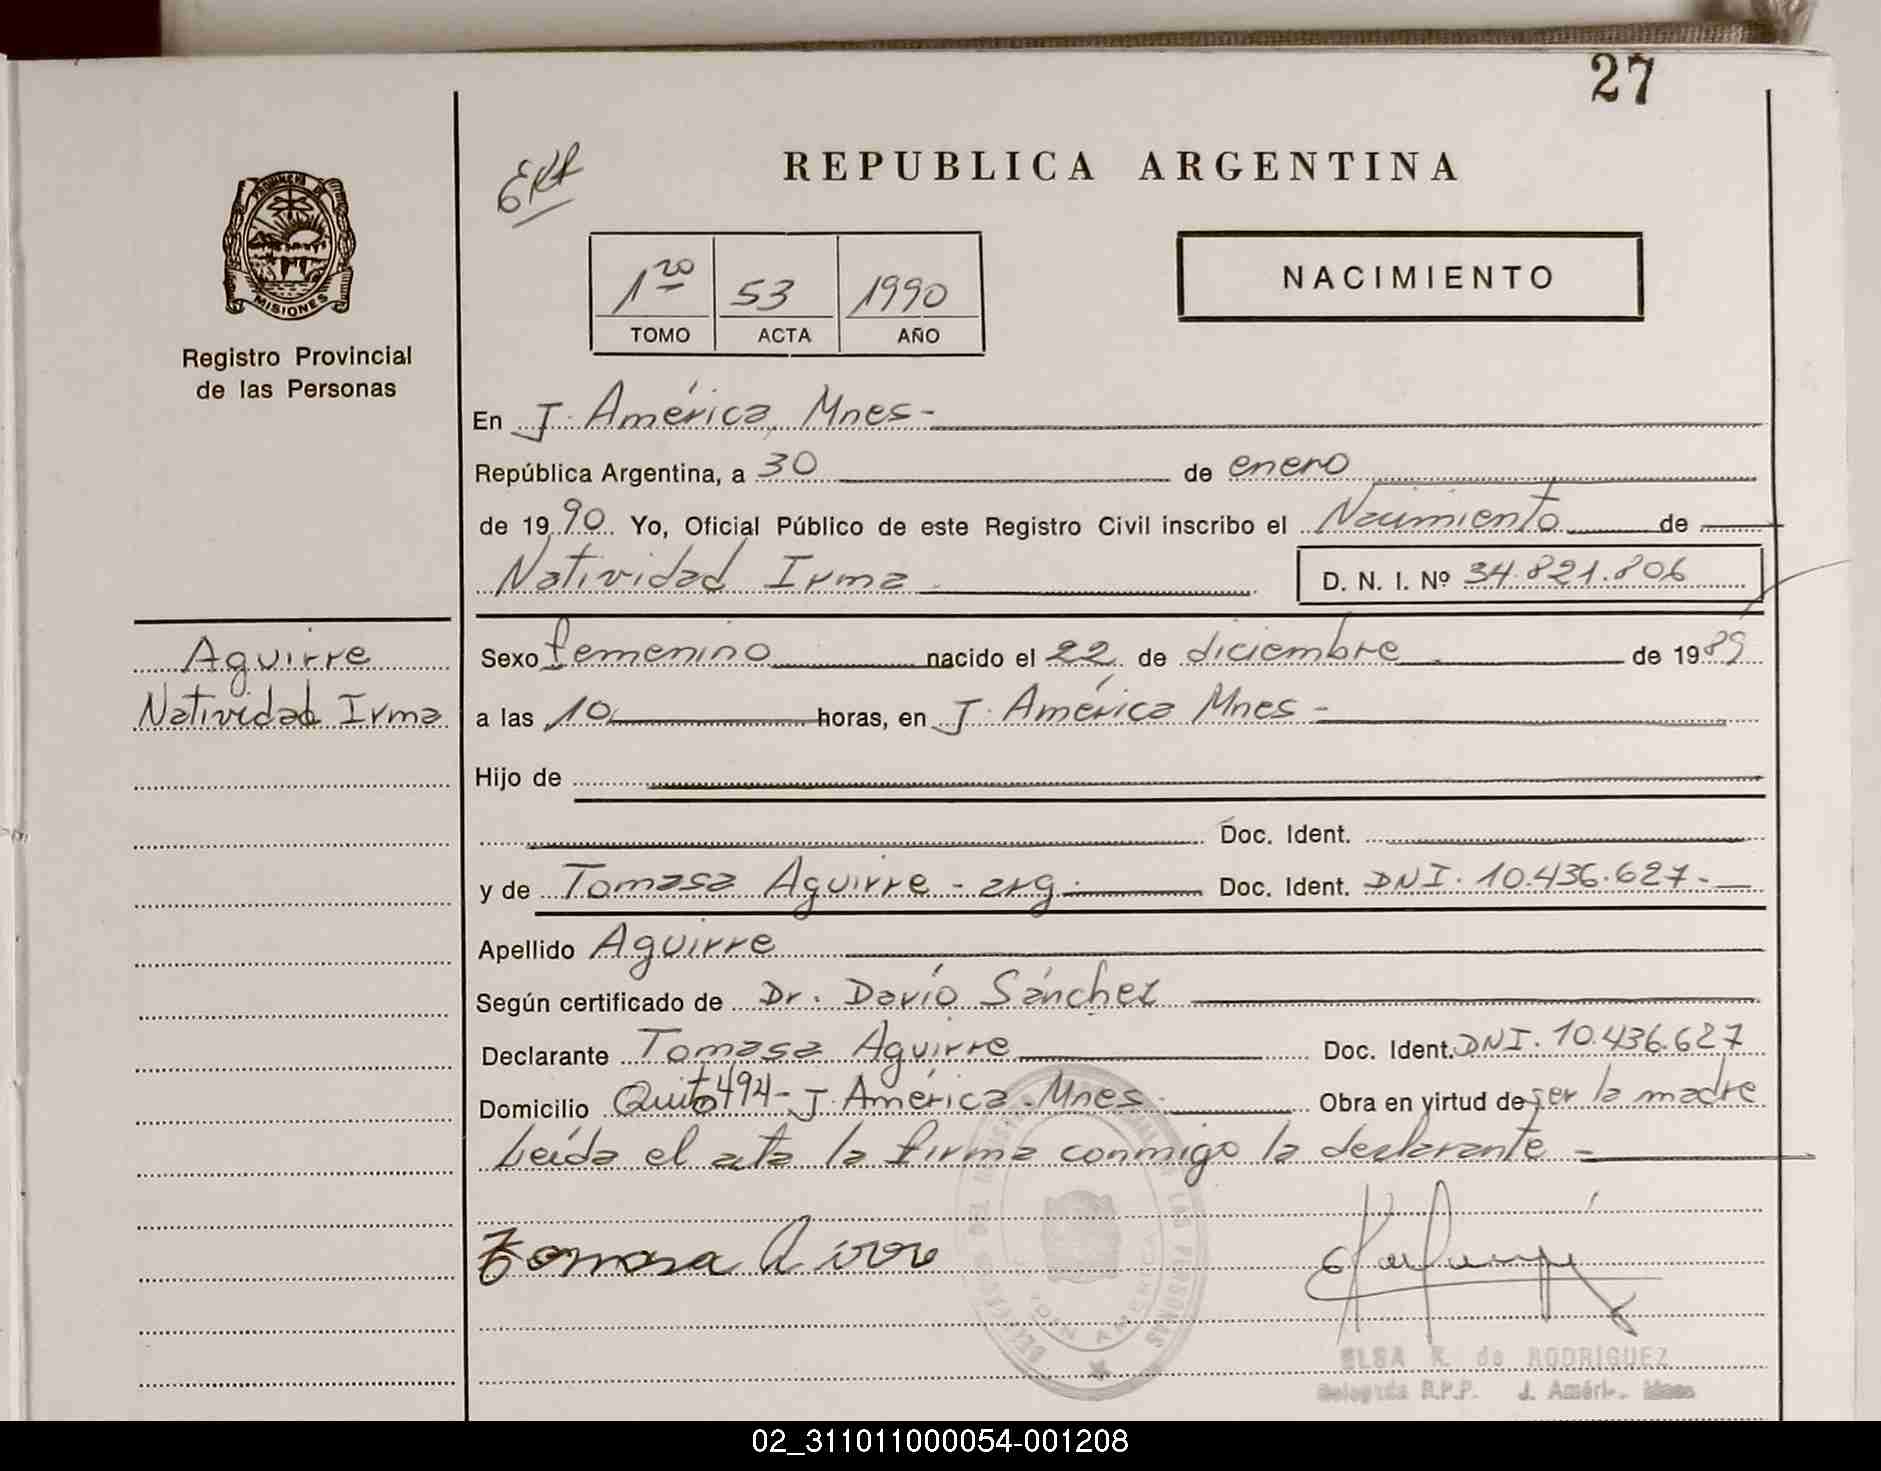 27
REPUBLICA ARGENTINA
PROVINCIA DE
MISIONES
Registro Provincial
de las Personas
1ro 53 1990
TOMO ACTA AÑO
NACIMIENTO
En J. América, Mnes-
República Argentina, a 30 de enero
de 1990 Yo, Oficial Público de este Registro Civil inscribo el Nacimiento de
Natividad Irma D. N. I. Nº 34.821.806
Aguirre
Natividad Irma
Sexo femenino nacido el 22 de diciembre de 1989
a las 10 horas, en J. América Mnes -
Hijo de
Doc. Ident.
y de Tomasa Aguirre - arg. Doc. Ident. DNI. 10.436.627.-
Apellido Aguirre
Según certificado de Dr. Darío Sánchez
Declarante Tomasa Aguirre Doc. Ident. DNI. 10.436.627
Domicilio Quito 494- J. América. Mnes. Obra en virtud de ser la madre
Leída el acta la firma conmigo la declarante -
Tomasa A irre
ELSA R. de RODRIGUEZ
Delegada R.P.P. J. Améri. Mnes
02_311011000054-001208